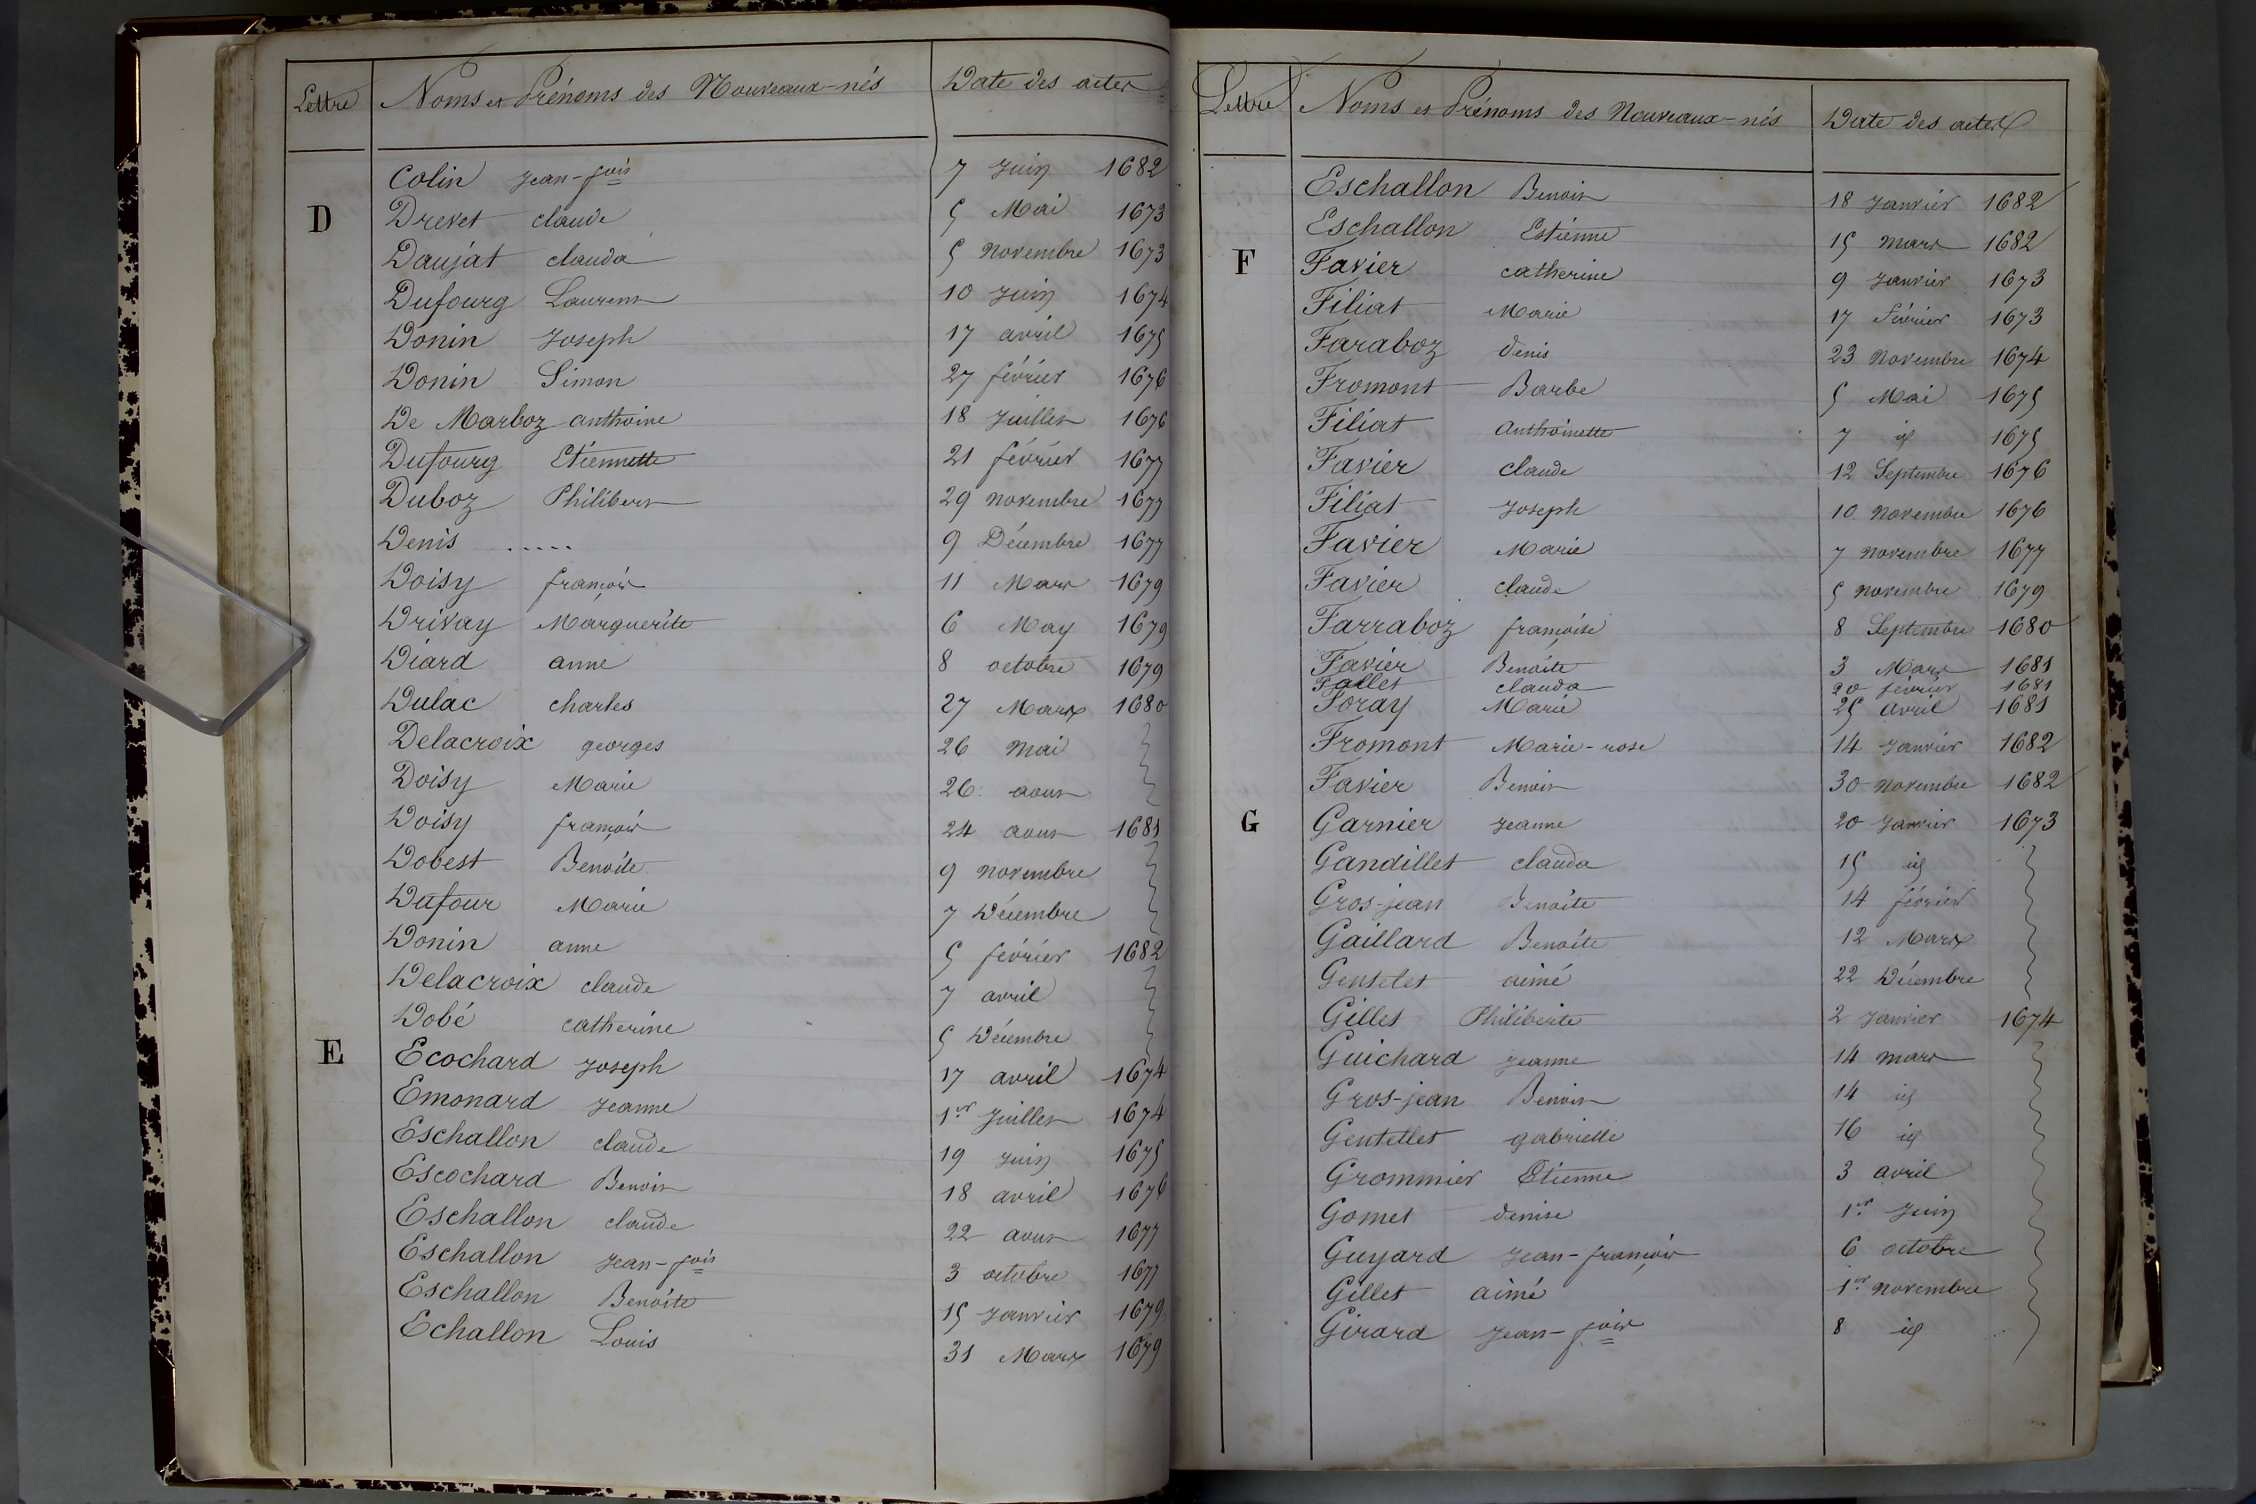 Lettre Noms et Prénoms des Nouveaux-nés Date des actes
Colin Jean-fois 7 Juin 1682
D Drevet claude 5 Mai 1673
Daujat clauda 5 novembre 1673
Dufourg Laurent 10 Juin 1674
Donin Joseph 17 avril 1675
Donin Simon 27 février 1676
De Marboz anthoine 18 Juillet 1676
Dufourg Etiennette 21 février 1677
Duboz Philibert 29 novembre 1677
Denis ..... 9 Décembre 1677
Doisy françois 11 Mars 1679
Drivay Marguerite 6 May 1679
Diard anne 8 octobre 1679
Dulac charles 27 Mars 1680
Delacroix georges 26 Mai
Doisy Marie 26 aout
Doisy françois 24 aout 1681
Dobest Benoite 9 novembre
Dufour Marie 7 Décembre
Donin anne 5 février 1682
Delacroix claude 7 avril
Dobé catherine 5 Décembre
E Ecochard Joseph 17 avril 1674
Emonard Jeanne 1er Juillet 1674
Eschallon claude 19 Juin 1675
Escochard Benoit 18 avril 1676
Eschallon claude 22 aout 1677
Eschallon Jean-fois 3 octobre 1677
Eschallon Benoite 15 Janvier 1679
Echallon Louis 31 Mars 1679
Lettre Noms et Prénoms des Nouveaux-nés Date des actes
Eschallon Benoit 18 Janvier 1682
Eschallon Estienne 15 mars 1682
F Favier catherine 9 Janvier 1673
Filiat Marie 17 Février 1673
Faraboz denis 23 Novembre 1674
Fromont Barbe 5 Mai 1675
Filiat Anthoinette 7 id 1675
Favier claude 12 Septembre 1676
Filiat Joseph 10 Novembre 1676
Favier Marie 7 novembre 1677
Favier claude 5 novembre 1679
Farraboz françoise 8 Septembre 1680
Favier Benoite 3 Mars 1681
Follet clauda 20 février 1681
Foray Marie 25 avril 1681
Fromont Marie-rose 14 Janvier 1682
Favier Benoit 30 novembre 1682
G Garnier Jeanne 20 Janvier 1673
Gandillet clauda 15 id
Gros-jean Benoite 14 février
Gaillard Benoite 12 Mars
Gentelet aimé 22 Décembre
Gillet Philiberte 2 Janvier 1674
Guichard Jeanne 14 mars
Gros-jean Benoit 14 id
Gentellet gabrielle 16 id
Grommier Etienne 3 avril
Gomet denise 1er Juin
Guyard Jean-françois 6 octobre
Gillet aimé 1er novembre
Girard Jean-fois 8 id